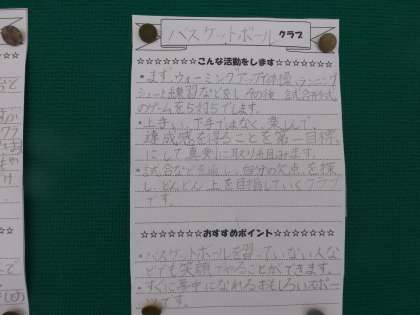 バスケットボール クラブ
☆☆☆☆☆☆☆こんな活動をします☆☆☆☆☆☆☆
・まず、ウォーミングアップで体操、ランニング
シュート練習などをし、その後、試合形式
のゲームを5対5でします。
・上手い、下手ではなく、楽しんで、
達成感を得ることを第一目標
にして真剣に取り組みます。
・試合などを通し、自分の欠点を探
し、どんどん上を目指していくクラブ
です。
☆☆☆☆☆☆☆おすすめポイント☆☆☆☆☆☆☆
・バスケットボールを習っていない人な
どでも笑顔でやることができます。
・すぐに夢中になれるおもしろいスポー
ツです。